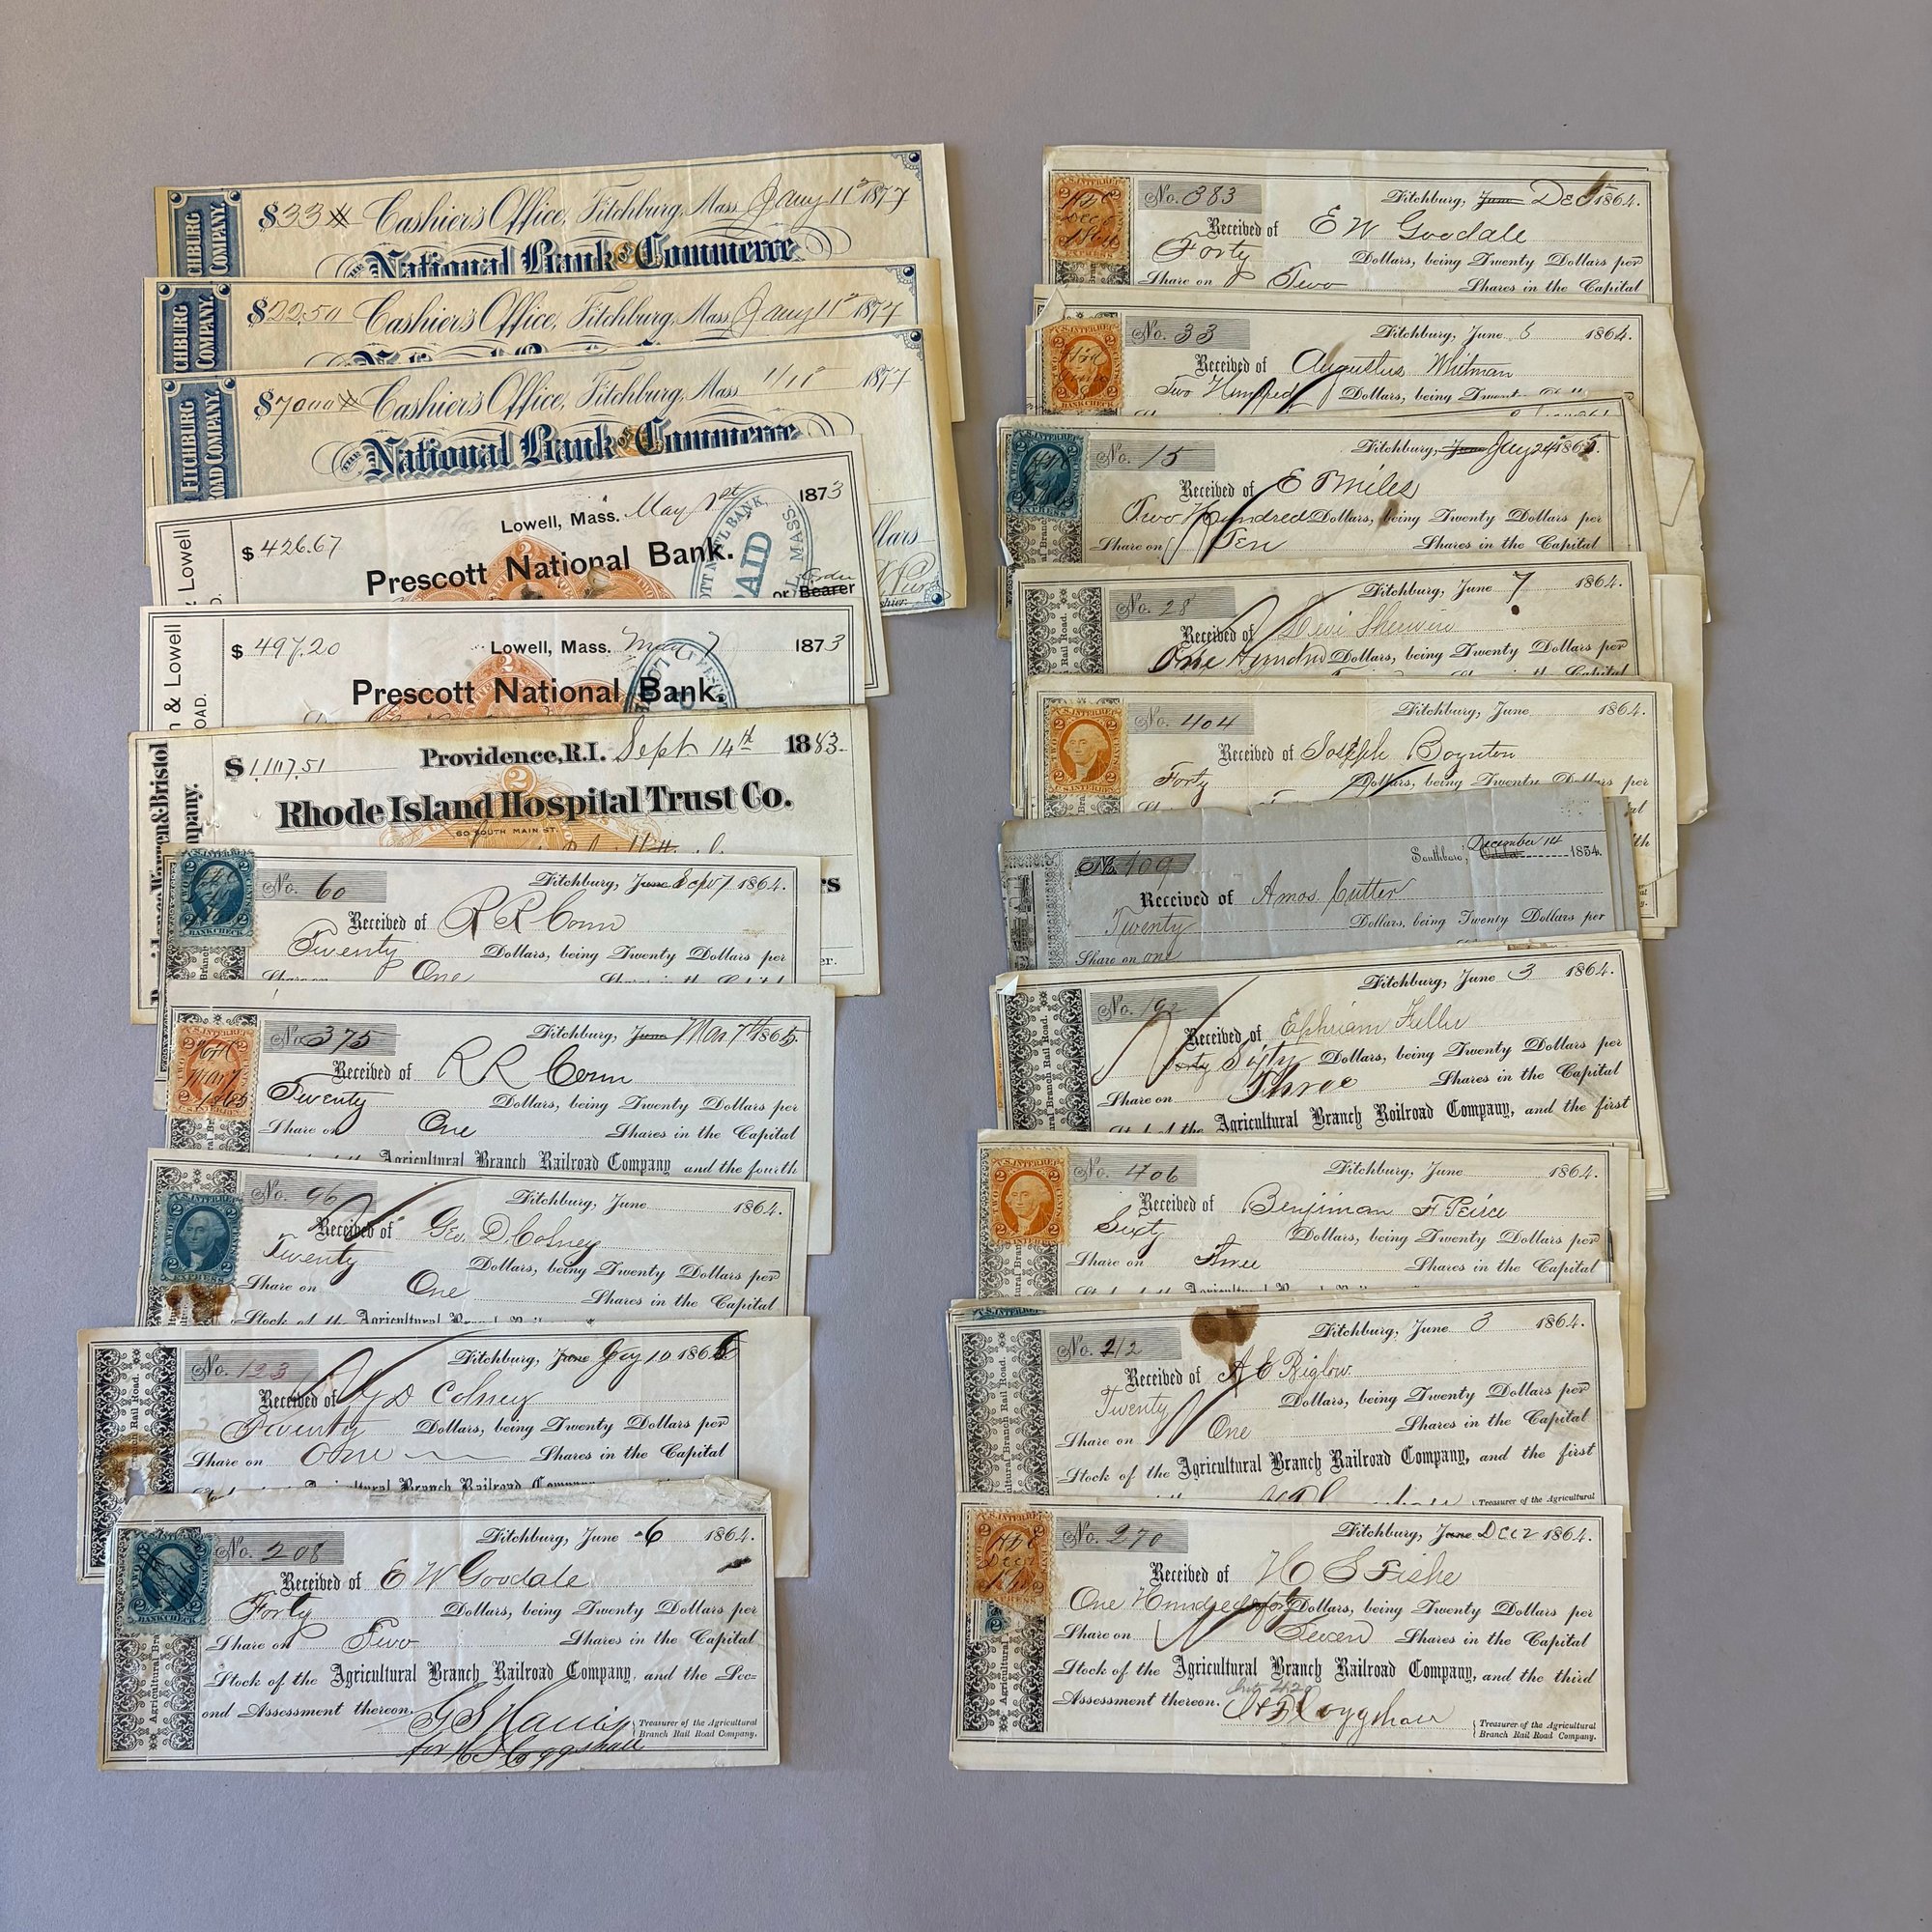 FITCHBURG
COMPANY.
$33 Cashier's Office, Fitchburg, Mass Jany 11th 1877
THE National Bank OF Commerce
CHBURG
COMPANY.
$22.50 Cashier's Office, Fitchburg, Mass Jany 11th 1877
FITCHBURG
ROAD COMPANY.
$7000 Cashier's Office, Fitchburg, Mass 1/11 1877
THE National Bank OF Commerce
llars
shier.
& Lowell
Lowell, Mass. May 1st 1873
$ 426.67
Prescott National Bank.
PAID
or Order Bearer
n & Lowell
OAD.
$ 497.20 Lowell, Mass. May 7 1873
Prescott National Bank.
Warren & Bristol
mpany.
$1,117.51 Providence, R.I. Sept. 14th 1883.
Rhode Island Hospital Trust Co.
60 SOUTH MAIN ST.
rs
er.
U.S. INTER. REV.
BANK CHECK
No. 60 Fitchburg, June Sept 7 1864.
Received of R R Conn
Twenty Dollars, being Twenty Dollars per
Share on One Shares in the Capital
No. 375 Fitchburg, June Mar 7th 1865.
Received of R R Conn
Twenty Dollars, being Twenty Dollars per
Share on One Shares in the Capital
Agricultural Branch Railroad Company and the fourth
U.S. INTER. REV.
EXPRESS
No. 96 Fitchburg, June 1864.
Received of Geo. D. Colney
Twenty Dollars, being Twenty Dollars per
Share on One Shares in the Capital
Stock of the Agricultural Branch
Rail Road.
No. 123 Fitchburg, June Jay 10 1865
Received of G D Colney
Twenty Dollars, being Twenty Dollars per
Share on One Shares in the Capital
Agricultural Branch Railroad Company
BANK CHECK
Agricultural Bra
No. 208 Fitchburg, June 6 1864.
Received of E W Goodale
Forty Dollars, being Twenty Dollars per
Share on Two Shares in the Capital
Stock of the Agricultural Branch Railroad Company, and the Sec=
ond Assessment thereon.
for H S Coggshall
Treasurer of the Agricultural
Branch Rail Road Company.
U.S. INTER. REV.
Dec
1864
EXPRESS
No. 383 Fitchburg, June Dec 5 1864.
Received of E W Goodale
Forty Dollars, being Twenty Dollars per
Share on Two Shares in the Capital
BANK CHECK
No. 33 Fitchburg, June 8 1864.
Received of Augustus Whitman
Two Hundred Dollars, being Twenty
U.S. INTER. REV.
EXPRESS
No. 15 Fitchburg, June Jay 24 1865.
Received of E T Miles
Two Hundred Dollars, being Twenty Dollars per
Share on Ten Shares in the Capital
Rail Road.
No. 28 Fitchburg, June 7 1864.
Received of Levi Sherwin
One Hundred Dollars, being Twenty Dollars per
Capital
U.S. INTER. REV.
No. 404 Fitchburg, June 1864.
Received of Joseph Boynton
Forty Dollars, being Twenty Dollars per
No. 109 Southboro', October December 14 1854.
Received of Amos Cutter
Twenty Dollars, being Twenty Dollars per
Share on one
Branch Rail Road.
No. 192 Fitchburg, June 3 1864.
Received of Ephriam Fuller
Forty Sixty Dollars, being Twenty Dollars per
Share on Three Shares in the Capital
Stock of the Agricultural Branch Railroad Company, and the first
U.S. INTER. REV.
No. 406 Fitchburg, June 1864.
Received of Benjiman F Peirce
Sixty Dollars, being Twenty Dollars per
Share on Three Shares in the Capital
Branch Rail Road.
No. 212 Fitchburg, June 3 1864.
Received of A E Biglow
Twenty Dollars, being Twenty Dollars per
Share on One Shares in the Capital
Stock of the Agricultural Branch Railroad Company, and the first
Treasurer of the Agricultural
Agricultural
No. 270 Fitchburg, June Dec 2 1864.
Received of H S Fiske
One Hundred forty Dollars, being Twenty Dollars per
Share on Seven Shares in the Capital
Stock of the Agricultural Branch Railroad Company, and the third
Assessment thereon. H S Coggshall
Treasurer of the Agricultural
Branch Rail Road Company.